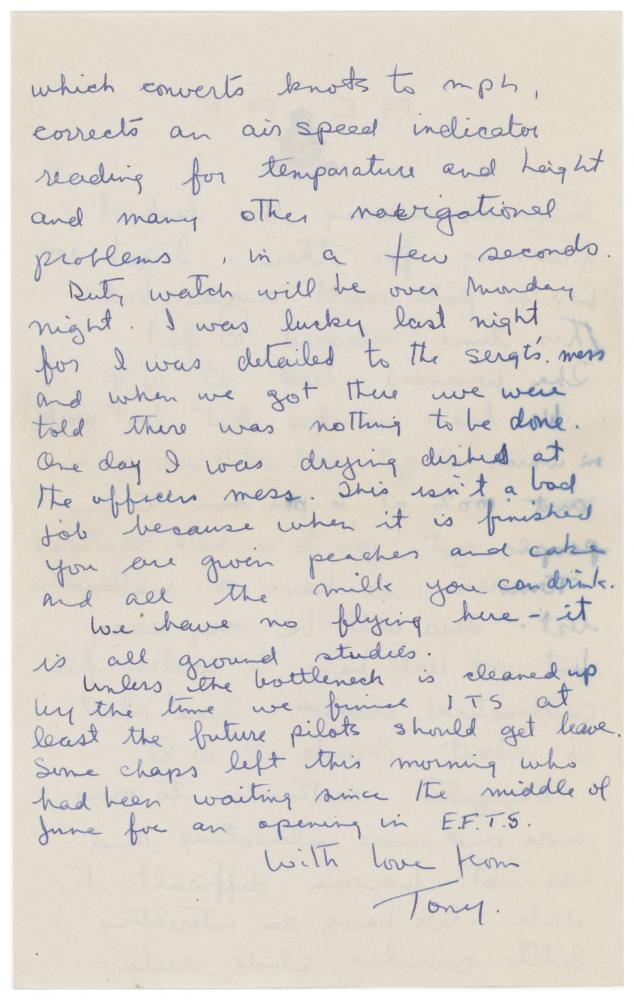 which converts knots to mph,
corrects an air speed indicator
reading for temparature and height
and many other navigational
problems, in a few seconds.
Duty watch will be over Monday
night. I was lucky last night
for I was detailed to the sergts. mess
and when we got there we were
told there was nothing to be done.
One day I was drying dishes at
the officers mess. This isn't a bad
job because when it is finished
you are given peaches and cake
and all the milk you can drink.
We have no flying here - it
is all ground studies.
Unless the bottleneck is cleaned up
by the time we finish ITS at
least the future pilots should get leave.
Some chaps left this morning who
had been waiting since the middle of
June for an opening in E.F.T.S.
With love from
Tony.